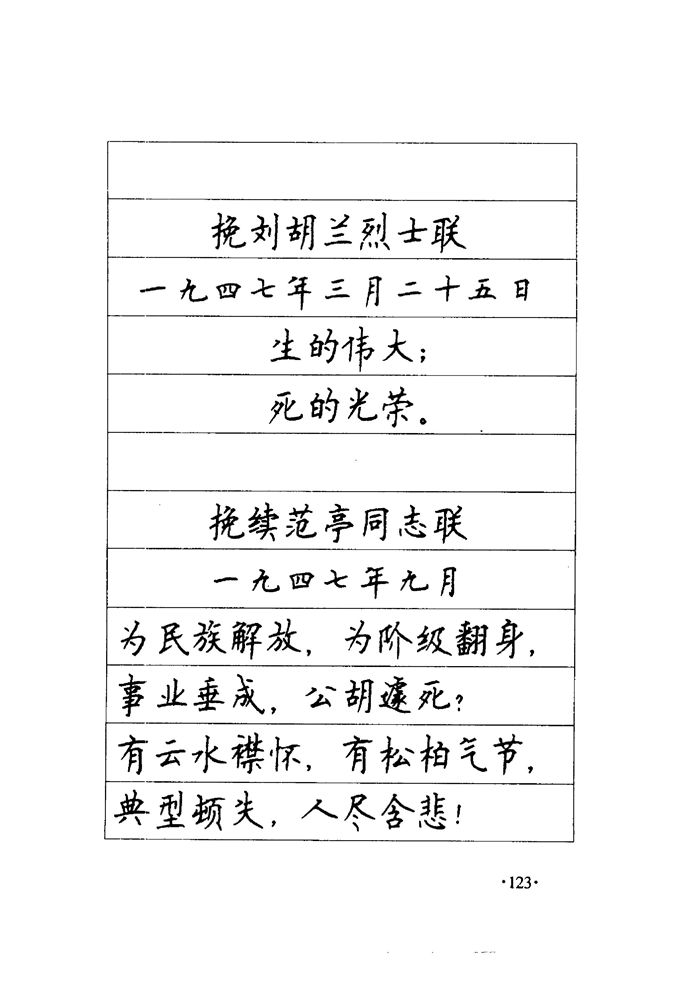 挽刘胡兰烈士联
一九四七年三月二十五日
生的伟大；
死的光荣。
挽续范亭同志联
一九四七年九月
为民族解放，为阶级翻身，
事业垂成，公胡遽死？
有云水襟怀，有松柏气节，
典型顿失，人尽含悲！
·123·